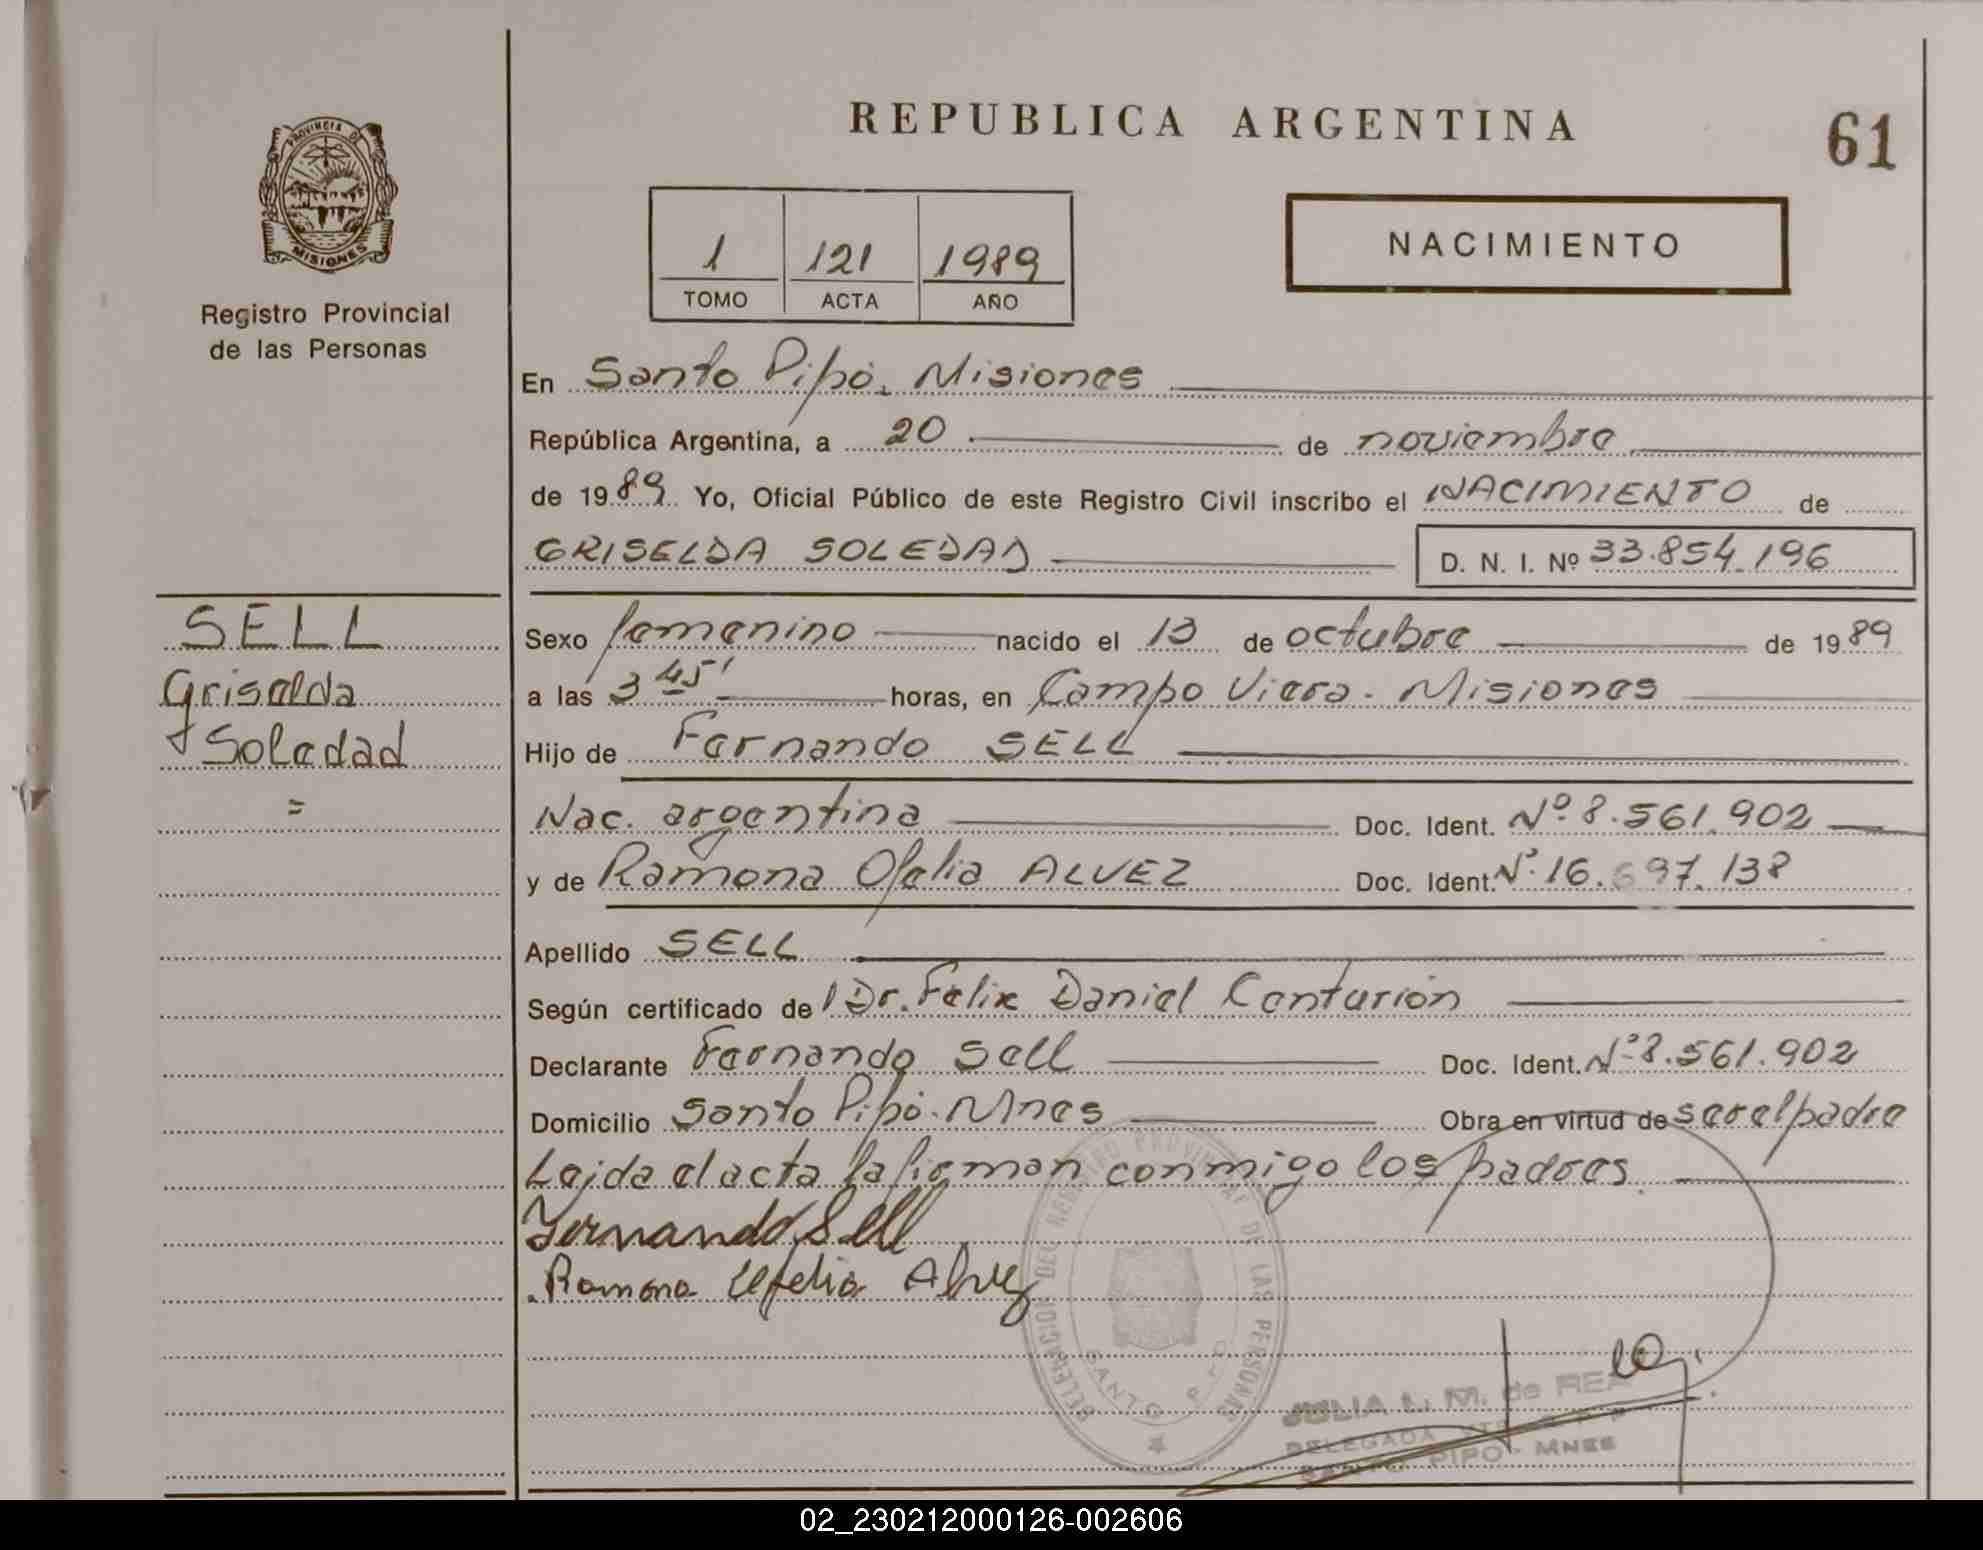 REPUBLICA ARGENTINA
61
PROVINCIA DE
MISIONES
Registro Provincial
de las Personas
1 121 1989
TOMO ACTA AÑO
NACIMIENTO
En Santo Pipó. Misiones
República Argentina, a 20 de noviembre
de 1989 Yo, Oficial Público de este Registro Civil inscribo el NACIMIENTO de
GRISELDA SOLEDAD D. N. I. Nº 33.854.196
SELL
Griselda
Soledad
=
Sexo femenino nacido el 13 de octubre de 1989
a las 3 45' horas, en Campo Viera. Misiones
Hijo de Fernando SELL
Nac. argentina Doc. Ident. Nº 8.561.902
y de Ramona Ofelia ALVEZ Doc. Ident. Nº 16.697.138
Apellido SELL
Según certificado de l Dr. Felix Daniel Centurión
Declarante Fernando Sell Doc. Ident. Nº 8.561.902
Domicilio Santo Pipó. Mnes Obra en virtud de ser el padre
Leida el acta la firman conmigo los padres.
Fernando Sell
Ramona Ofelia Alvez
DELEGACION DEL REGISTRO PROVINCIAL DE LAS PERSONAS
SANTO PIPO
JULIA L. M. de REA
DELEGADA
SANTO PIPO - MNES
02_230212000126-002606